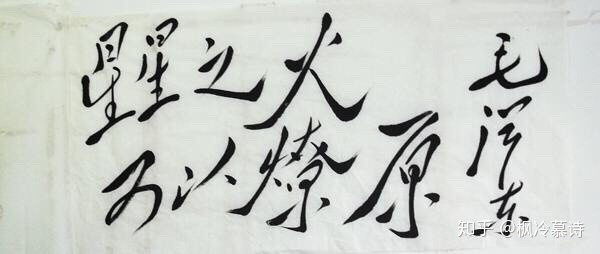 星星之火
可以燎原
毛泽东
知乎 @枫冷慕诗